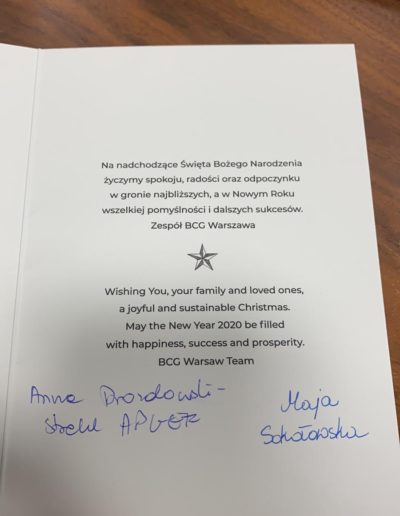 Na nadchodzące Święta Bożego Narodzenia
życzymy spokoju, radości oraz odpoczynku
w gronie najbliższych, a w Nowym Roku
wszelkiej pomyślności i dalszych sukcesów.
Zespół BCG Warszawa
Wishing You, your family and loved ones,
a joyful and sustainable Christmas.
May the New Year 2020 be filled
with happiness, success and prosperity.
BCG Warsaw Team
Anna
Maja
Sokołowska